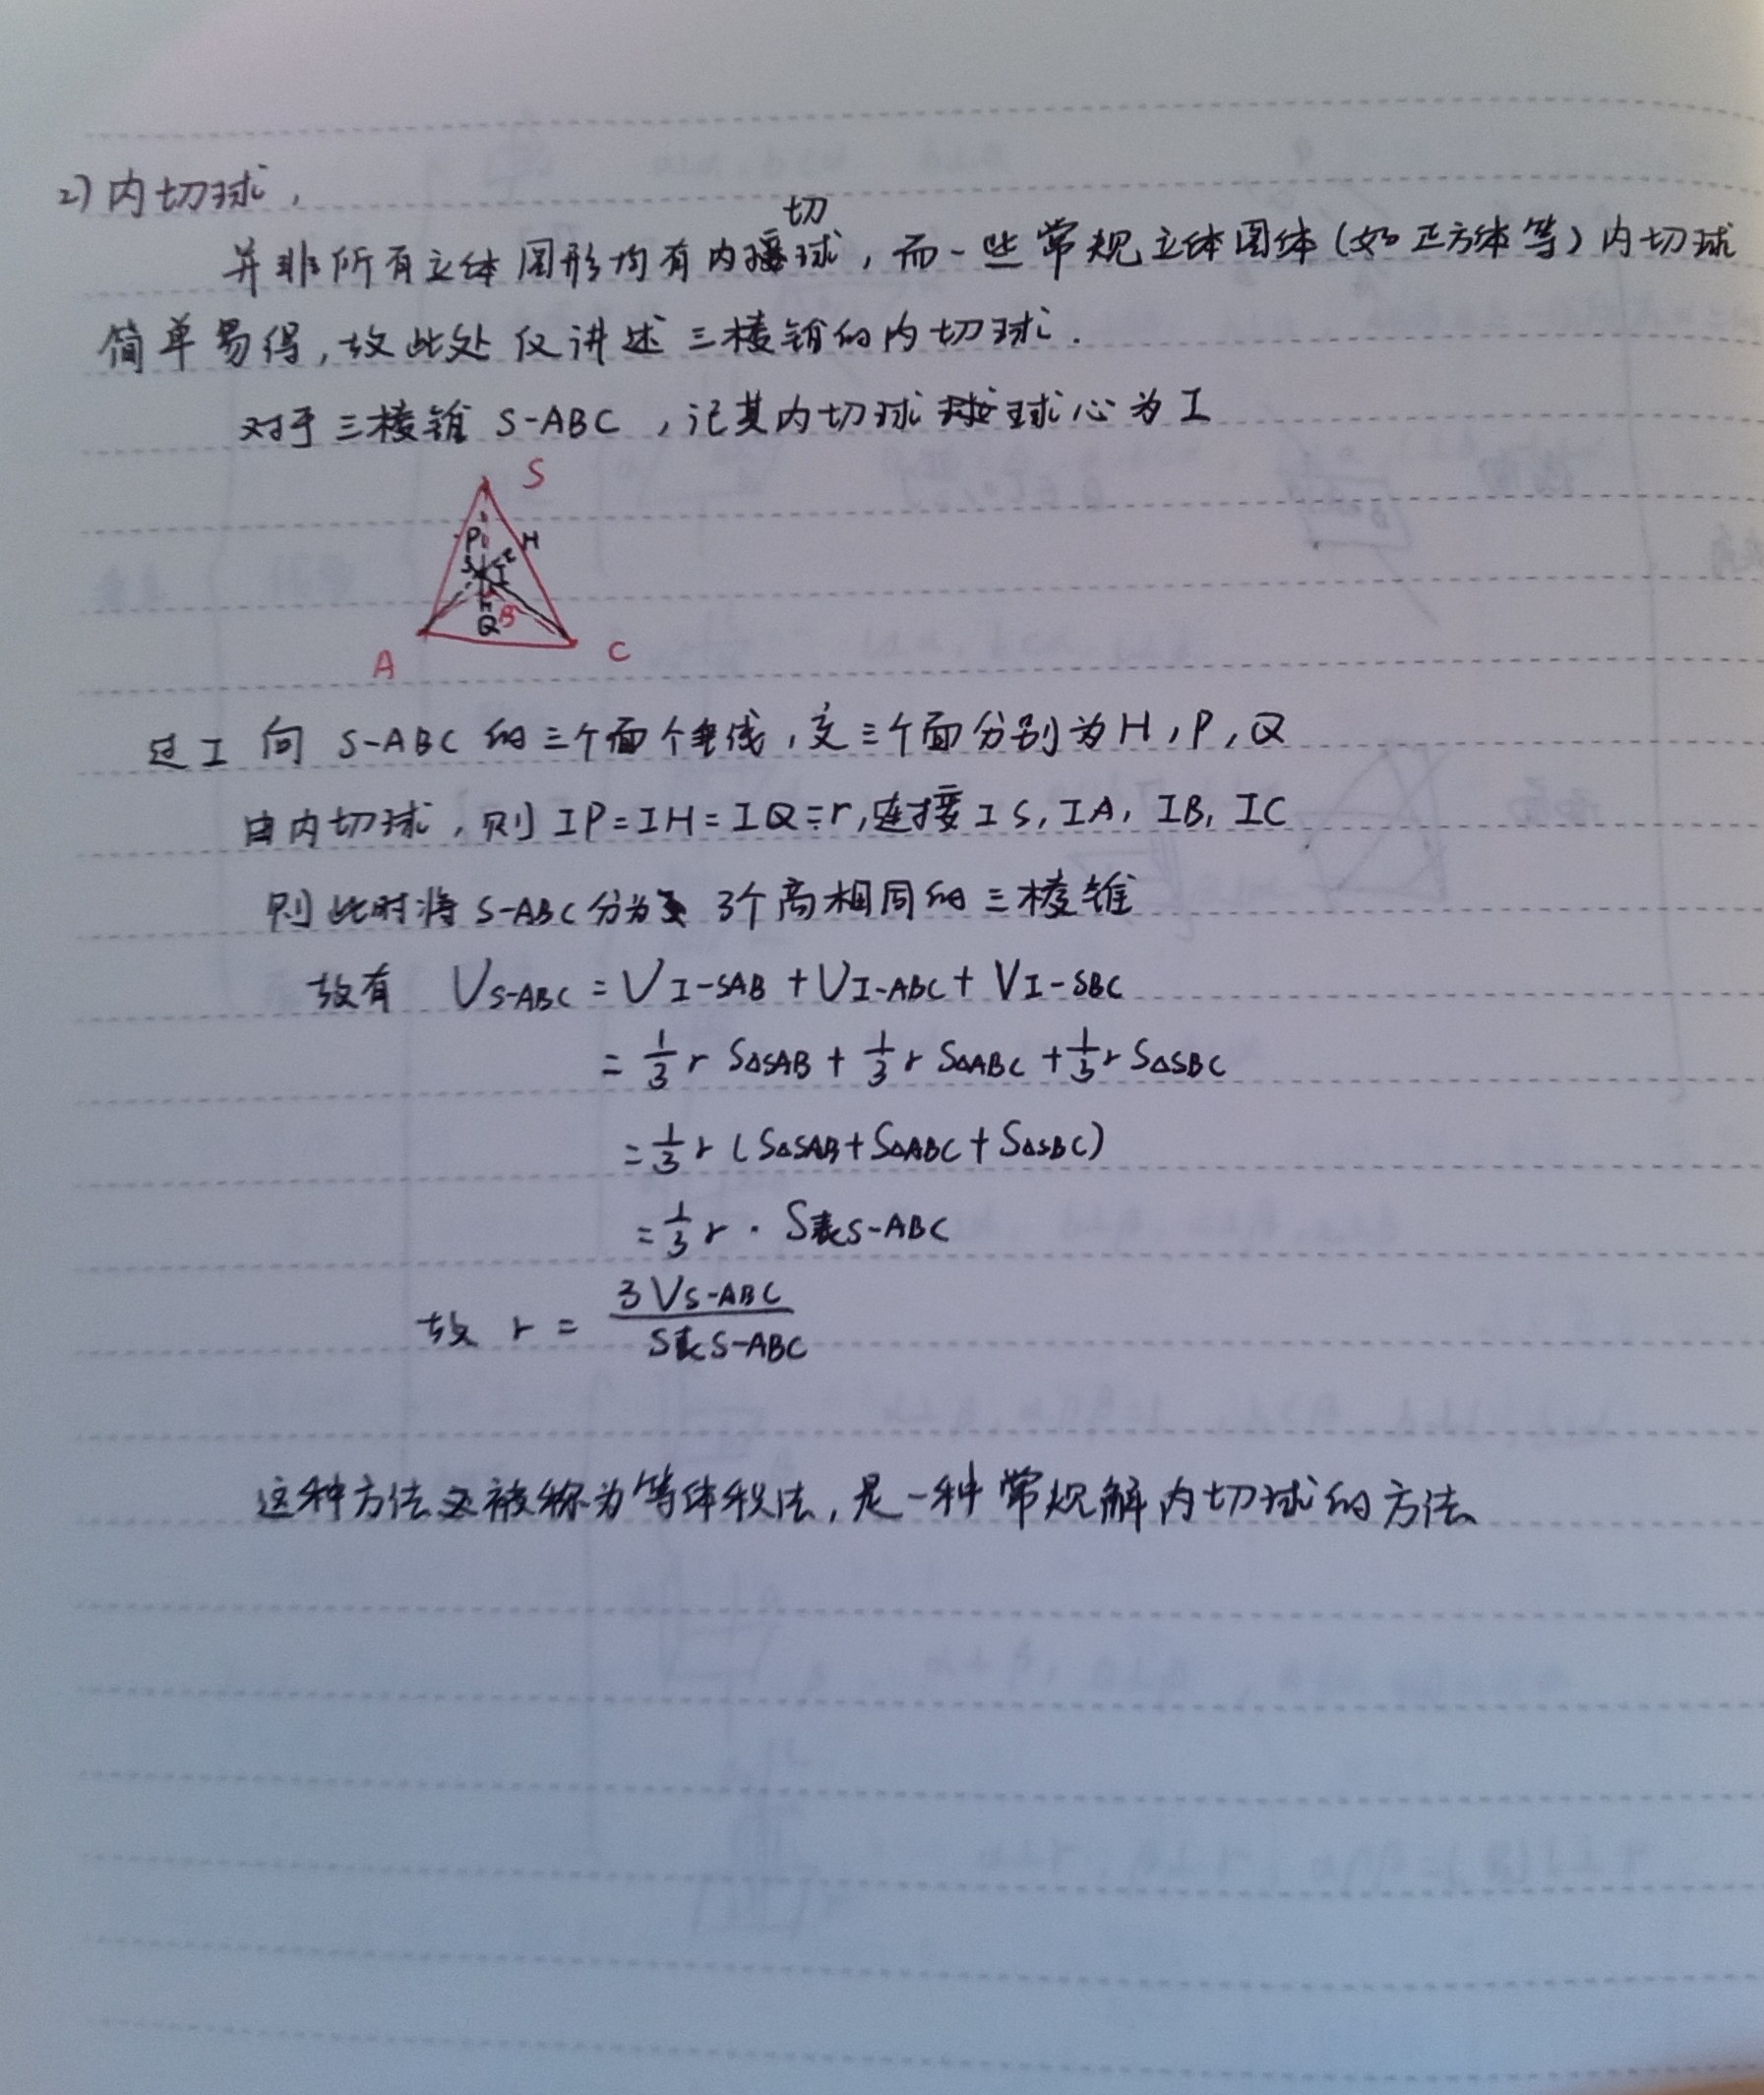 2) 内切球,
切
并非所有立体图形均有内球,而一些常规立体图体(如正方体等)内切球
简单易得,故此处仅讲述三棱锥的内切球.
对于三棱锥 S-ABC,记其内切球球心为I
S
P H
I
B
Q
A C
过I向 S-ABC 的三个面个垂线,交三个面分别为H,P,Q
由内切球,则 IP=IH=IQ=r,连接IS,IA,IB,IC
则此时将 S-ABC分为 3个高相同的三棱锥
故有 VS-ABC = VI-SAB + VI-ABC + VI-SBC
= 1/3 r S△SAB + 1/3 r S△ABC + 1/3 r S△SBC
= 1/3 r (S△SAB + S△ABC + S△SBC)
= 1/3 r · S表S-ABC
故 r = 3VS-ABC / S表S-ABC
这种方法被称为等体积法,是一种常规解内切球的方法、